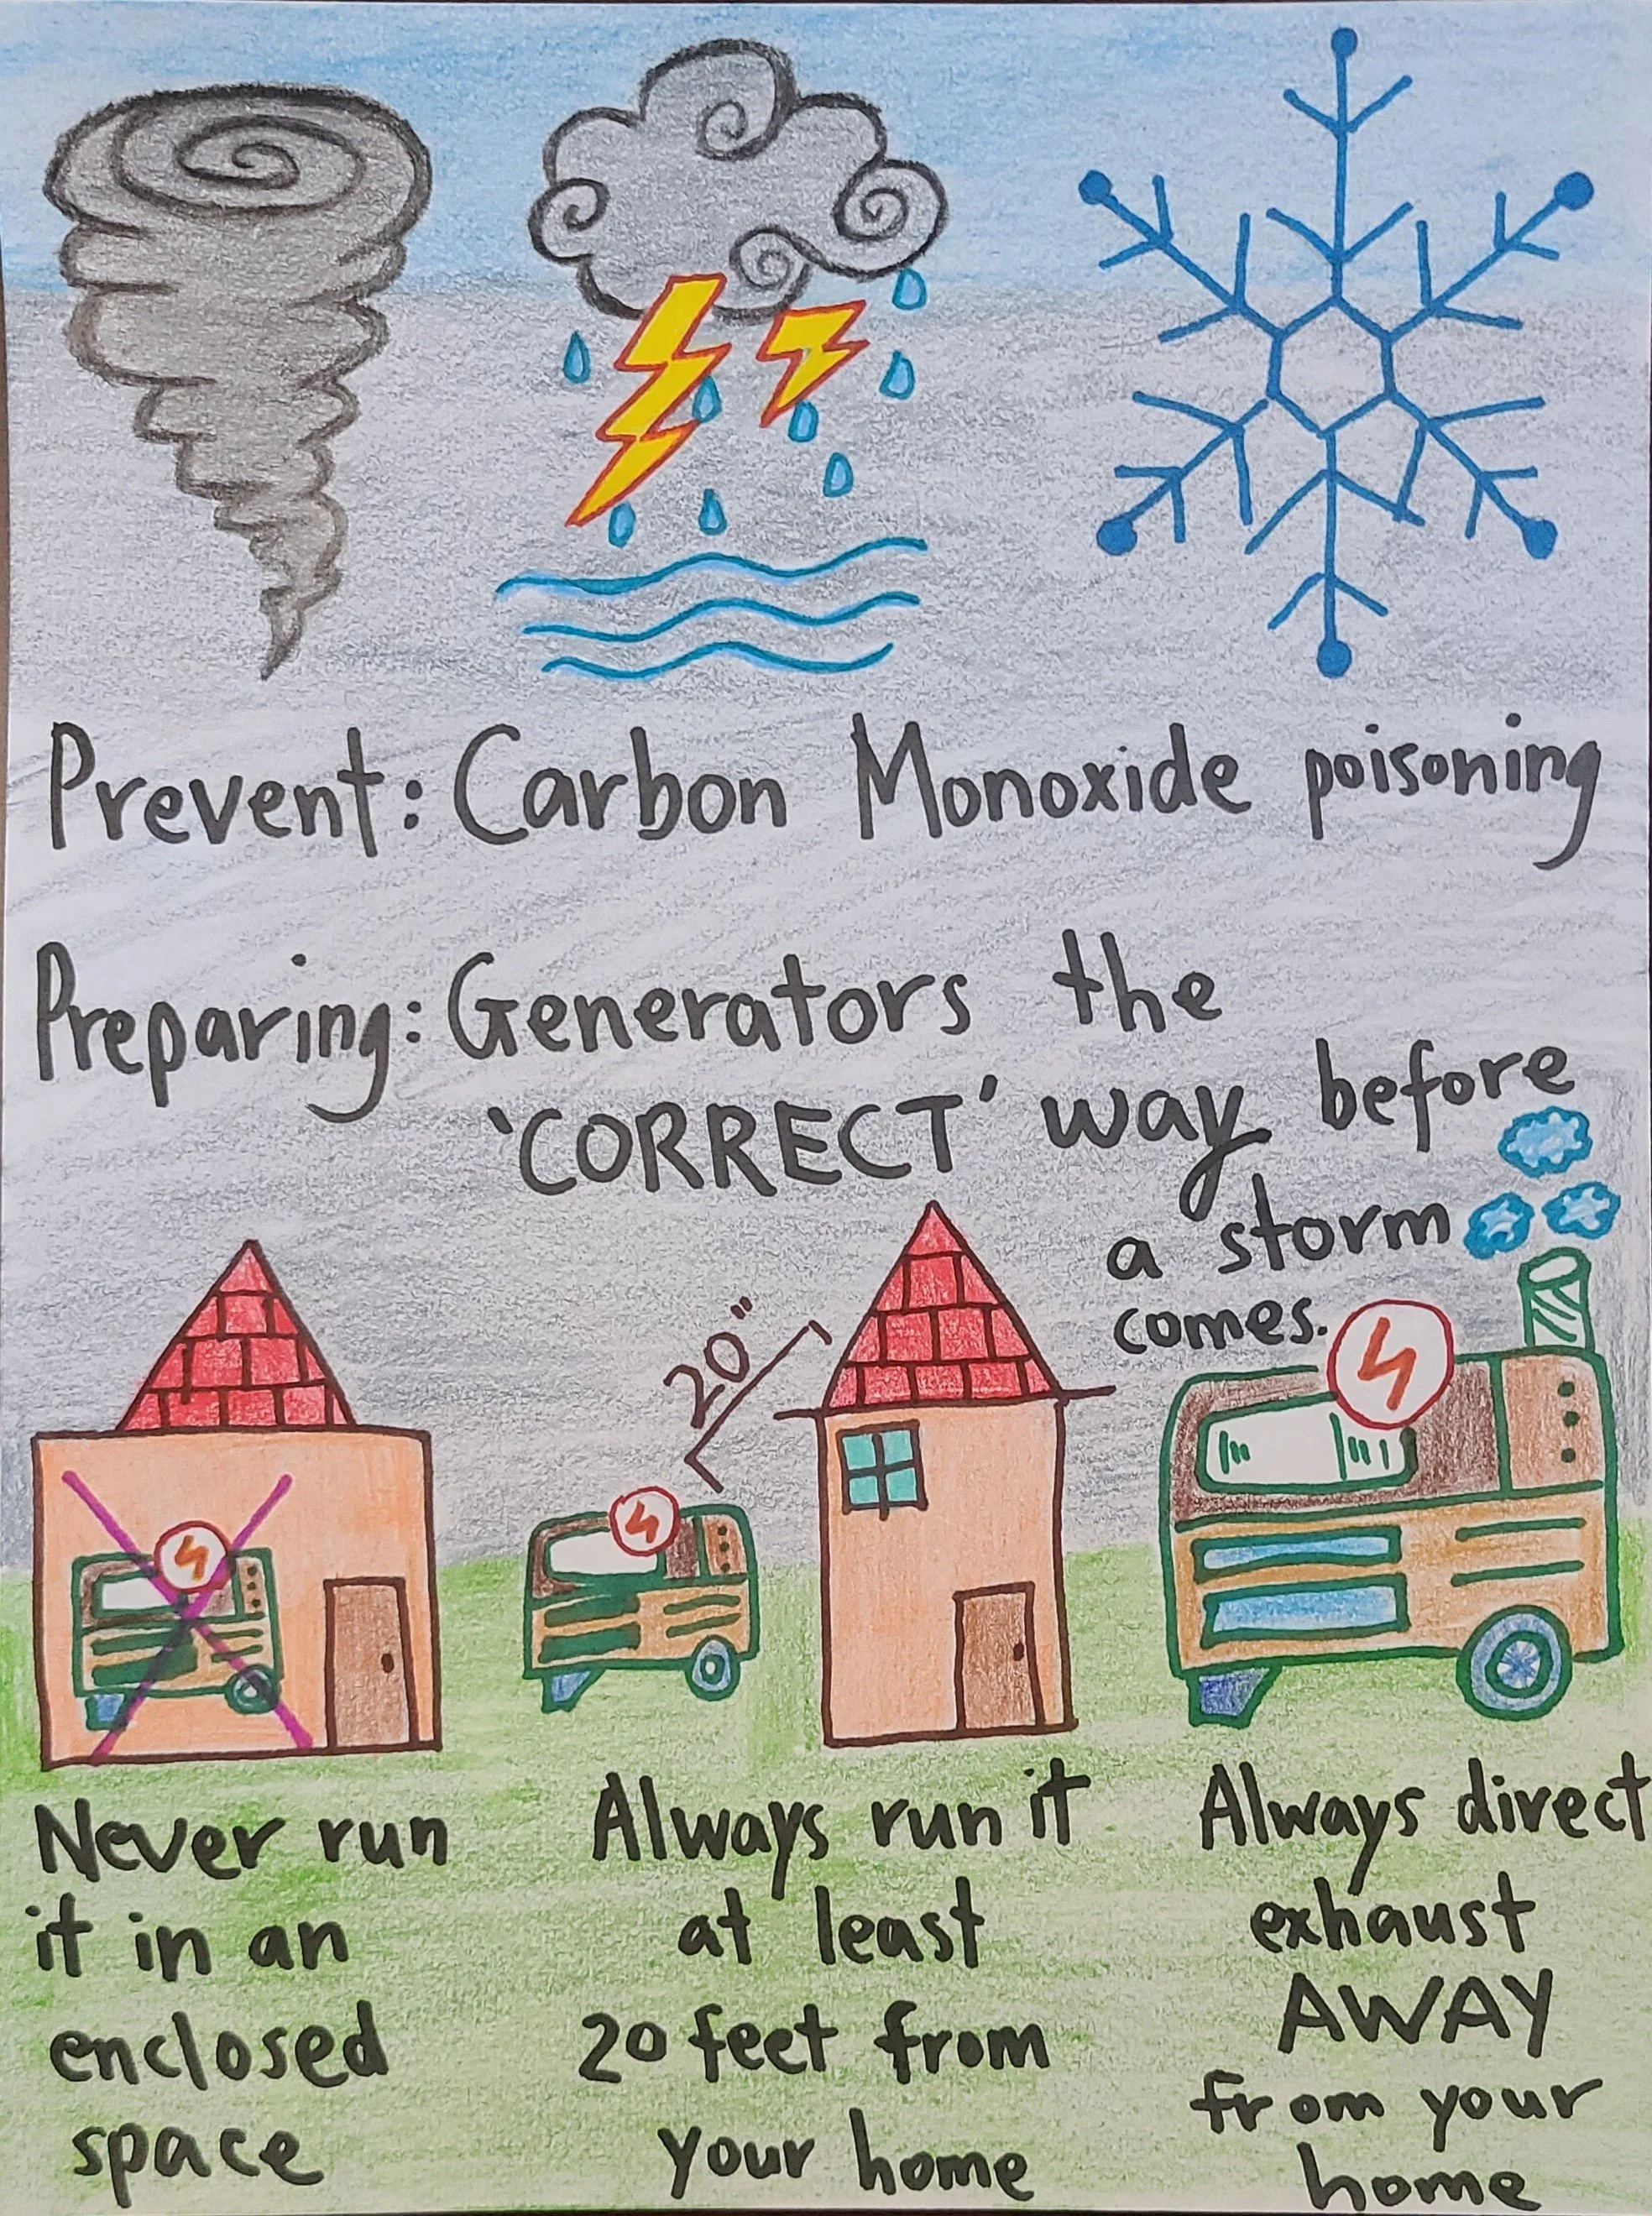 Prevent: Carbon Monoxide poisoning
Preparing: Generators the
'CORRECT' way before
a storm
comes.
20"
Never run
it in an
enclosed
space
Always run it
at least
20 feet from
your home
Always direct
exhaust
AWAY
from your
home